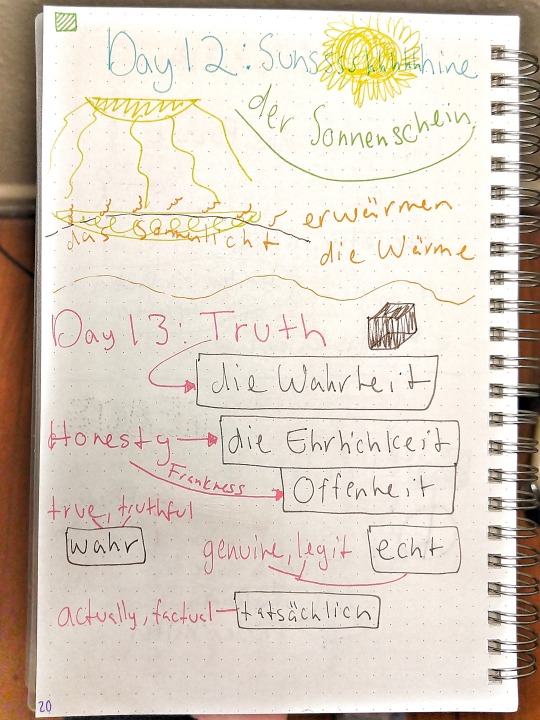 Day 12: Sunssssshhhhhine
der Sonnenschein
erwärmen
das Sonnenlicht
die Wärme
Day 13: Truth
die Wahrheit
Honesty die Ehrlichkeit
Frankness
Offenheit
true, truthful
wahr
genuine, legit echt
actually, factual tatsächlich
20